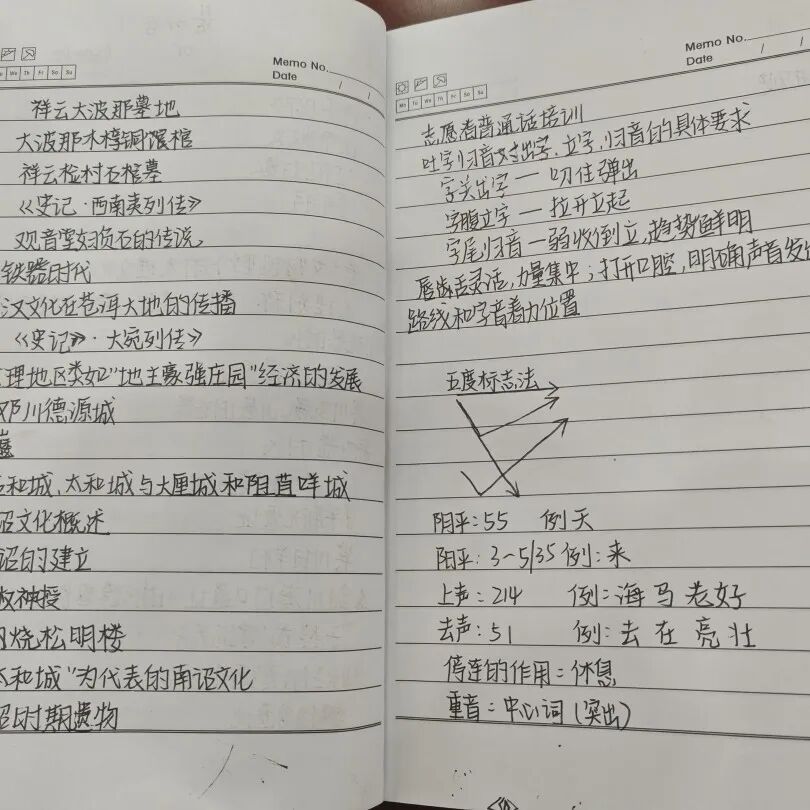 Memo No.
Date / /
We Th Fr Sa Su
祥云大波那墓地
大波那木椁铜馆棺
祥云检村石棺墓
《史记·西南夷列传》
观音堂妇负石的传说。
铁器时代
汉文化在苍洱大地的传播
《史记》·大宛列传》
理地区类如"地主豪强庄园"经济的发展
邓川德源城
和城,太和城与大厘城和阳苴咩城
诏文化概述
诏的建立
权神授
火烧松明楼
太和城"为代表的南诏文化
诏时期遗物
Memo No.
Date / /
Mo Tu We Th Fr Sa Su
志愿者普通话培训
吐字归音对出字、立字,归音的具体要求
字头出字 — 叼住弹出
字腹立字 — 拉开立起
字尾归音 — 弱收到立,趋势鲜明
唇齿舌灵活,力量集中;打开口腔,明确声音发出
路线和字音着力位置
五度标志法
阴平:55 例天
阳平:3-5/35 例:来
上声:214 例:海 马 老 好
去声:51 例:去 在 亮 壮
停连的作用:休息
重音:中心词(突出)